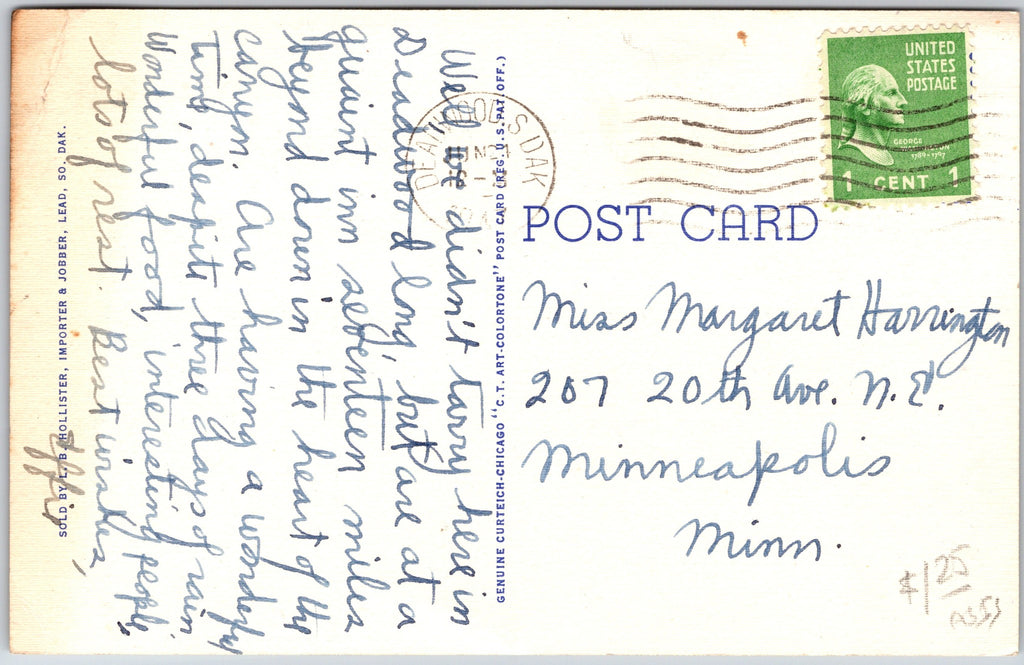 Well we didn't tarry here in
Deadwood long, but are at a
quaint inn seventeen miles
beyond down in the heart of the
canyon. Are having a wonderful
time, despite three days of rain
Wonderful food, interesting people,
lots of rest. Best wishes,
Effie
SOLD BY L. B. HOLLISTER, IMPORTER & JOBBER, LEAD, SO. DAK.
GENUINE CURTEICH-CHICAGO "C.T. ART-COLORTONE" POST CARD (REG. U.S. PAT. OFF.)
DEADWOOD, S. DAK
JUN 24
UNITED
STATES
POSTAGE
GEORGE
WASHINGTON
1789-1797
1 CENT 1
POST CARD
Miss Margaret Harrington
207 20th Ave. N. E.
Minneapolis
Minn.
$1 25